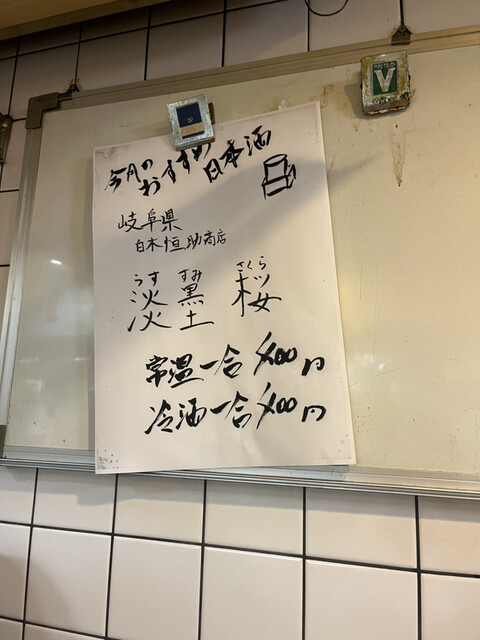 今月の
おすすめ日本酒
岐阜県
白木恒助商店
うす すみ さくら
淡墨桜
常温一合 400円
冷酒一合 400円
V